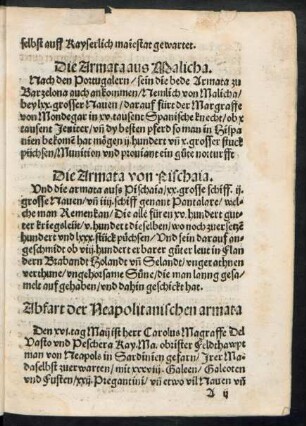 selbst auff Kayserlich maiestat gewartet.
Die Armata aus Malicha.
Nach den Portugalern / sein die bede Armata zu
Barzelona auch ankommen / Nemlich von Malicha /
bey lxx. grosser Nauen / darauf fürt der Margraffe
von Mondegar in xv. tausent Spanische knecht / ob x
tausent Jeniter / vñ dy besten pferd so man in Hispa
nien bekomē hat mögen ij. hundert vñ xx. grosser stuck
püchsen / Munition vnd prouiant ein gute notturfft
Die Armata von Pischaia.
Und die armata auß Pischaia / xx. grosse schiff. ij.
grosse Nauen / vñ iiij. schiff genant Pantalare / wel-
che man Remenkau / Die alle für ein xv. hundert gut-
ter kriegsleüt / v. hundert dieselben / wo noch zuersetzē
hundert vnd lxxx. stuck püchsen / Und sein darauf an-
geschmidt ob viij. hundert erbarer güter leut in Flan
dern Brabandt Holandt vñ Selandt / vngeratthnen
verthune / vngehorsame Süne / die man lanng gesa-
melt auf gehaben / vnd dahin geschickt hat.
Abfart der Neapolitanischen armata
Den xvi. tag Maij ist herr Carolus Magraffe Del
Vasto vnd Peschera Kay. Ma. obrister Feldthawpt
man von Neapols in Sardinien gefarn / Irer Ma-
daselbst zuerwarten / mit xxxviij. Galeen / Galeoten
und Fusten / xxij. Pregantini / vñ etwo vil Nauen vñ
A ij